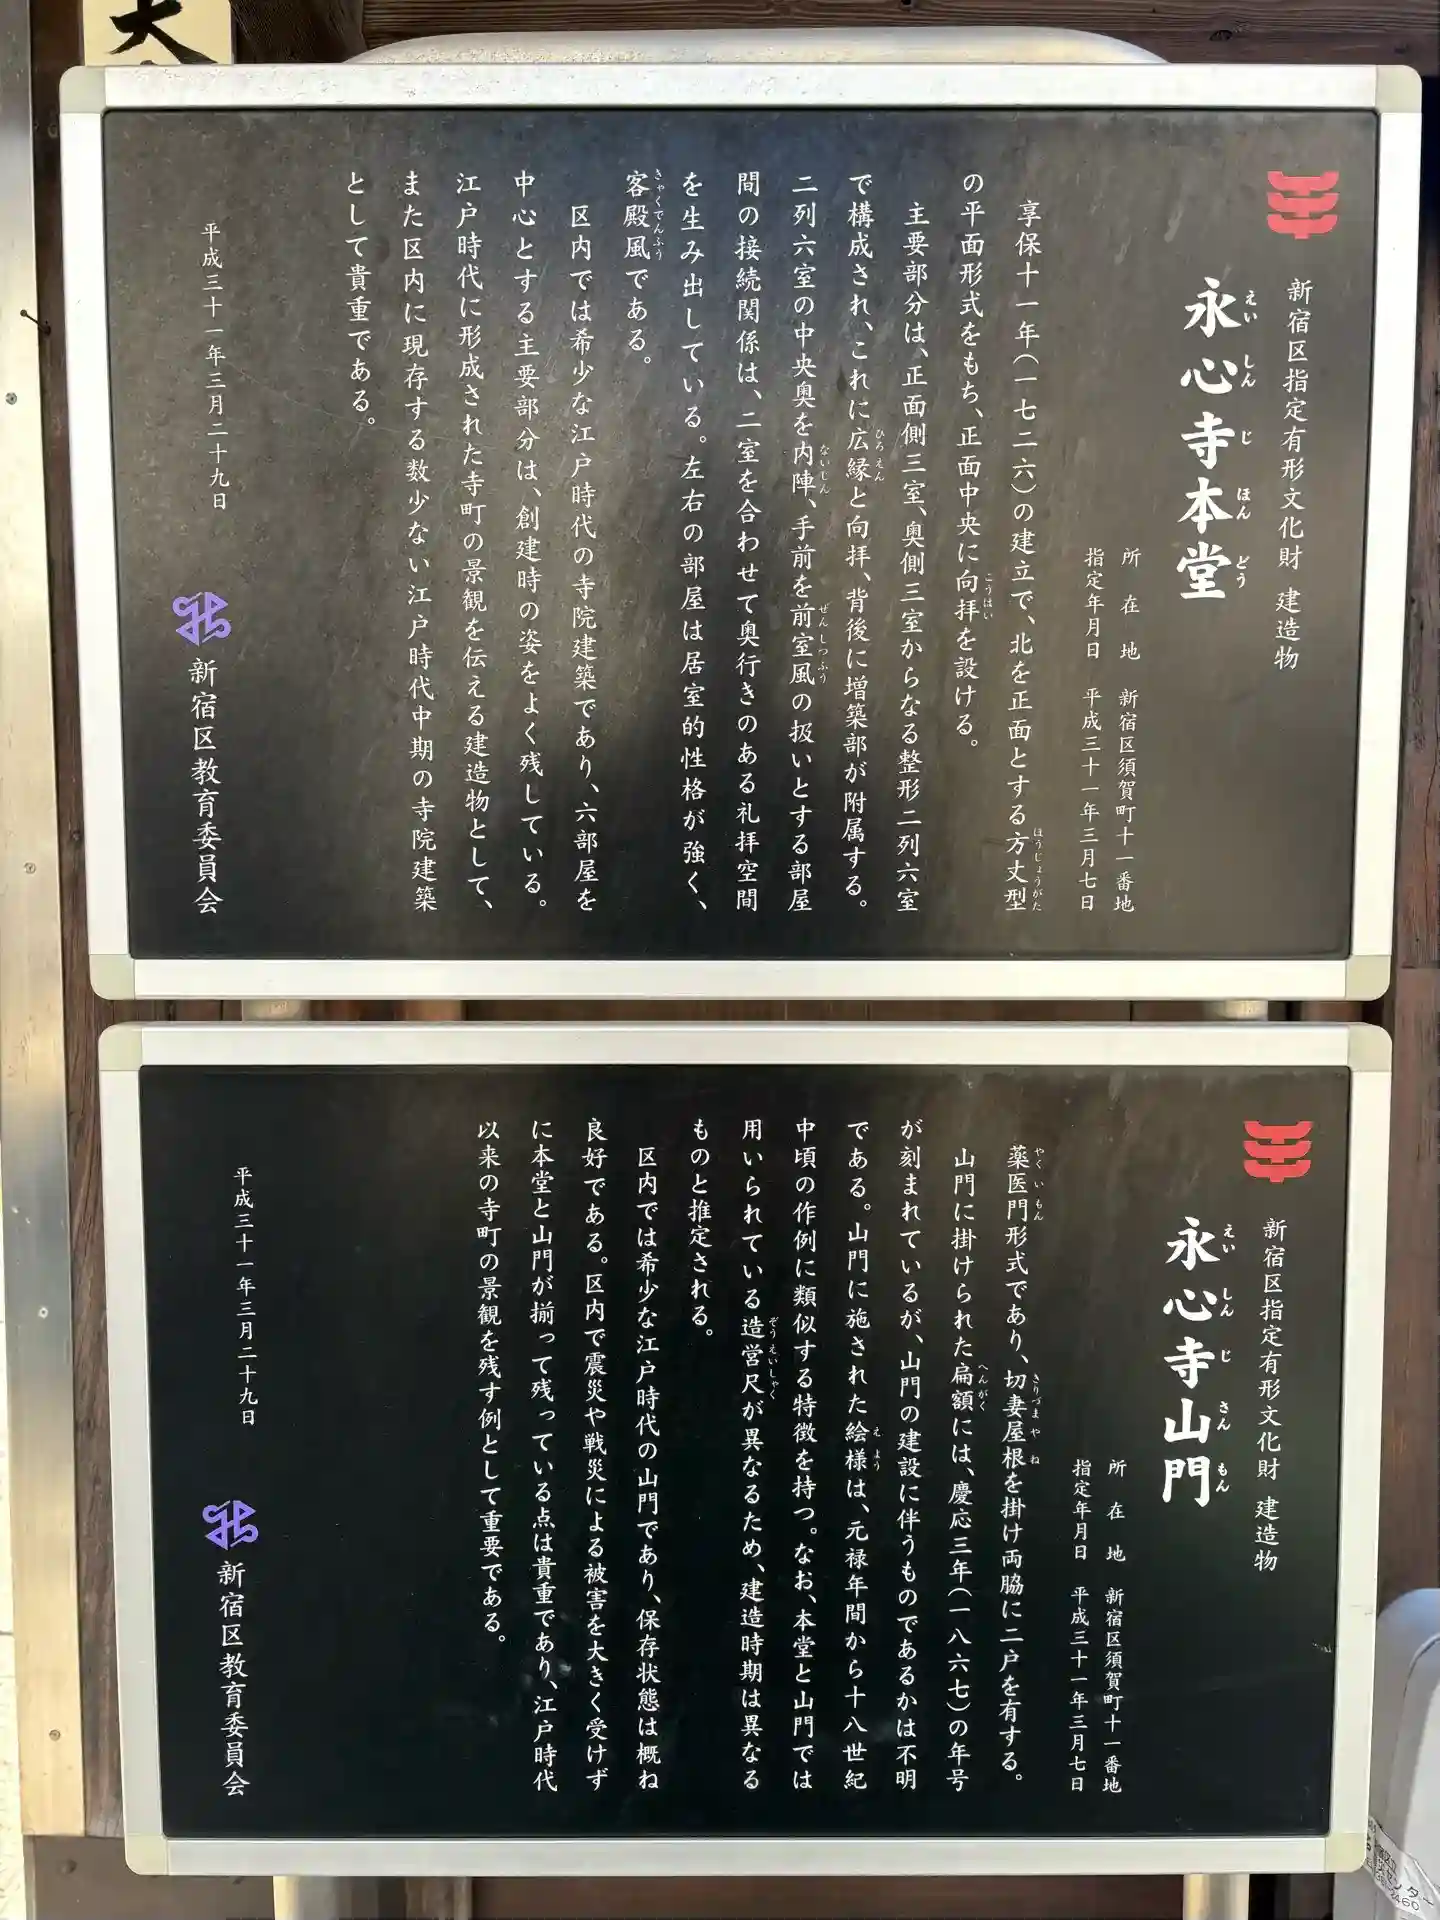 新宿区指定有形文化財 建造物
永心寺本堂
えいしんじほんどう
所在地 新宿区須賀町十一番地
指定年月日 平成三十一年三月七日
享保十一年(一七二六)の建立で、北を正面とする方丈型
ほうじょうがた
の平面形式をもち、正面中央に向拝を設ける。
こうはい
主要部分は、正面側三室、奥側三室からなる整形二列六室
で構成され、これに広縁と向拝、背後に増築部が附属する。
ひろえん
二列六室の中央奥を内陣、手前を前室風の扱いとする部屋
ないじん ぜんしつふう
間の接続関係は、二室を合わせて奥行きのある礼拝空間
を生み出している。左右の部屋は居室的性格が強く、
客殿風である。
きゃくでんふう
区内では希少な江戸時代の寺院建築であり、六部屋を
中心とする主要部分は、創建時の姿をよく残している。
江戸時代に形成された寺町の景観を伝える建造物として、
また区内に現存する数少ない江戸時代中期の寺院建築
として貴重である。
平成三十一年三月二十九日
新宿区教育委員会
新宿区指定有形文化財 建造物
永心寺山門
えいしんじさんもん
所在地 新宿区須賀町十一番地
指定年月日 平成三十一年三月七日
薬医門形式であり、切妻屋根を掛け両脇に二戸を有する。
やくいもん きりづまやね
山門に掛けられた扁額には、慶応三年(一八六七)の年号
へんがく
が刻まれているが、山門の建設に伴うものであるかは不明
である。山門に施された絵様は、元禄年間から十八世紀
えよう
中頃の作例に類似する特徴を持つ。なお、本堂と山門では
用いられている造営尺が異なるため、建造時期は異なる
ぞうえいしゃく
ものと推定される。
区内では希少な江戸時代の山門であり、保存状態は概ね
良好である。区内で震災や戦災による被害を大きく受けず
に本堂と山門が揃って残っている点は貴重であり、江戸時代
以来の寺町の景観を残す例として重要である。
平成三十一年三月二十九日
新宿区教育委員会